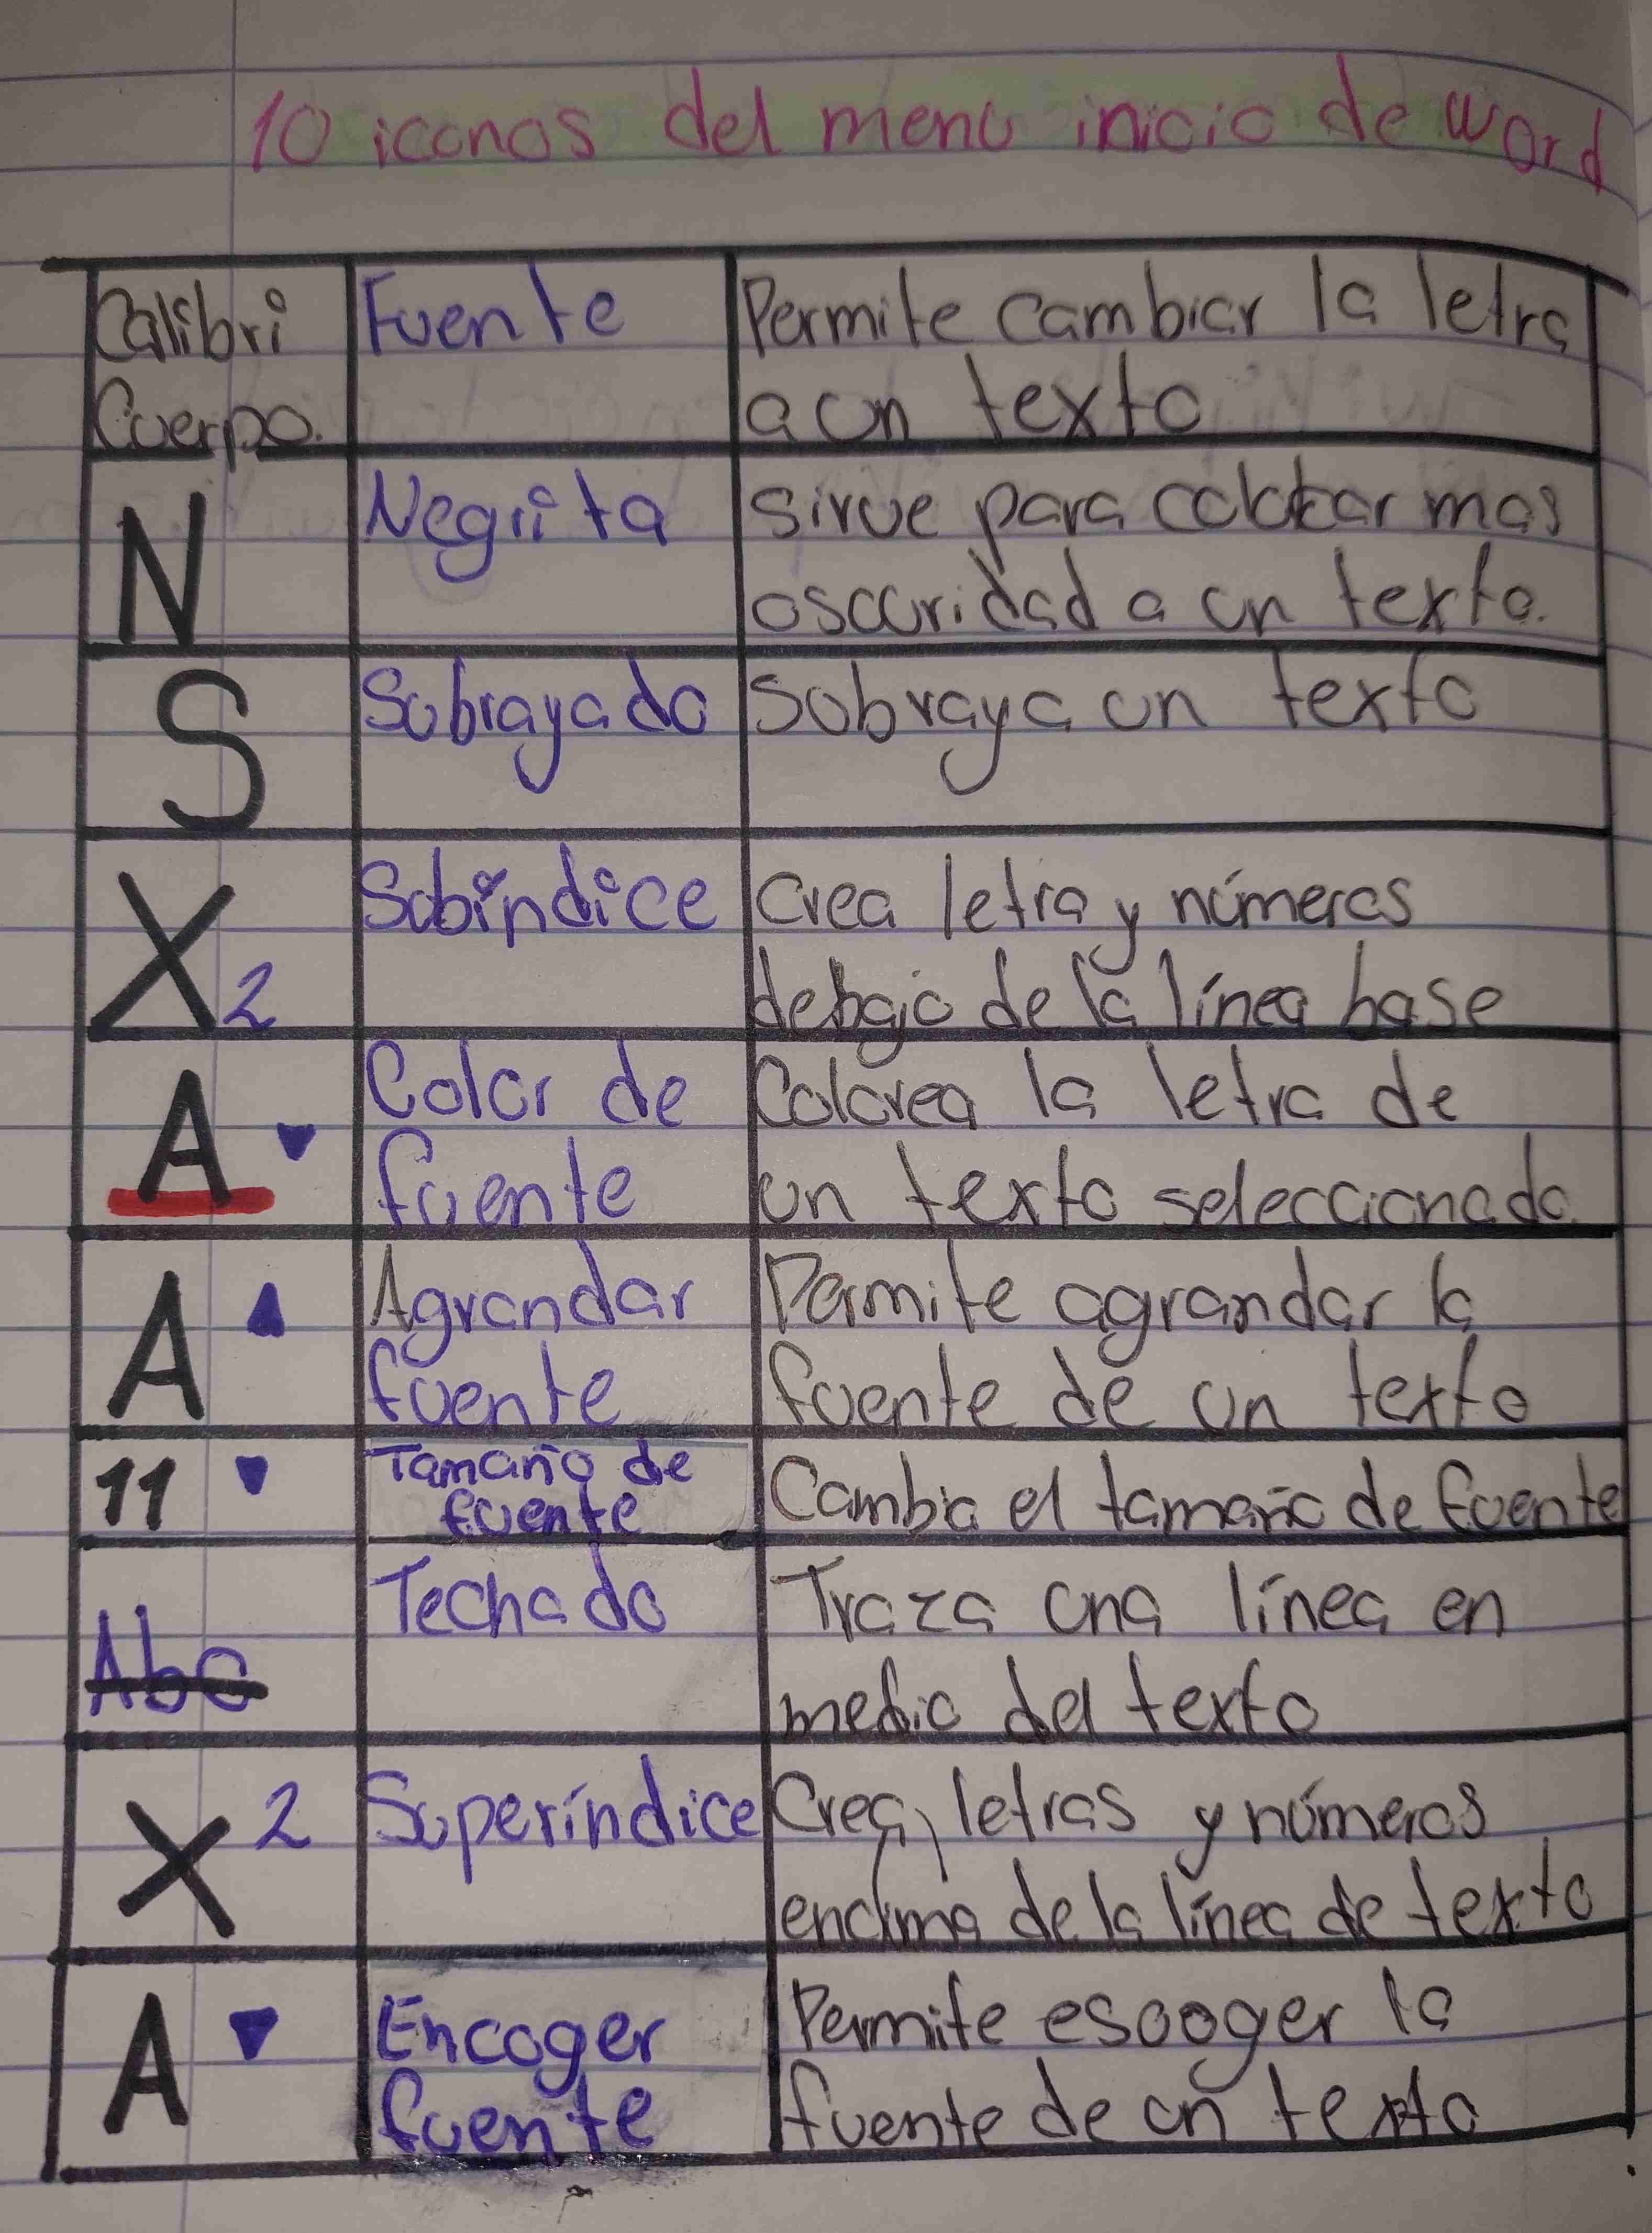 10 iconos del menu inicio de word
Calibri Cuerpo.
Fuente
Permite cambiar la letra
a un texto
N
Negrita
Sirve para colocar mas
oscuridad a un texto.
S
Subrayado
Subraya un texto
X2
Subíndice
Crea letra y números
debajo de la línea base
A
Color de
fuente
Colorea la letra de
un texto seleccionado
A
Agrandar
fuente
Permite agrandar la
fuente de un texto
11
Tamaño de
fuente
Cambia el tamaño de fuente
Abc
Techado
Traza una línea en
medio del texto
X2
Superíndice
Crea letras y números
encima de la línea de texto
A
Encoger
fuente
Permite escoger la
fuente de un texto